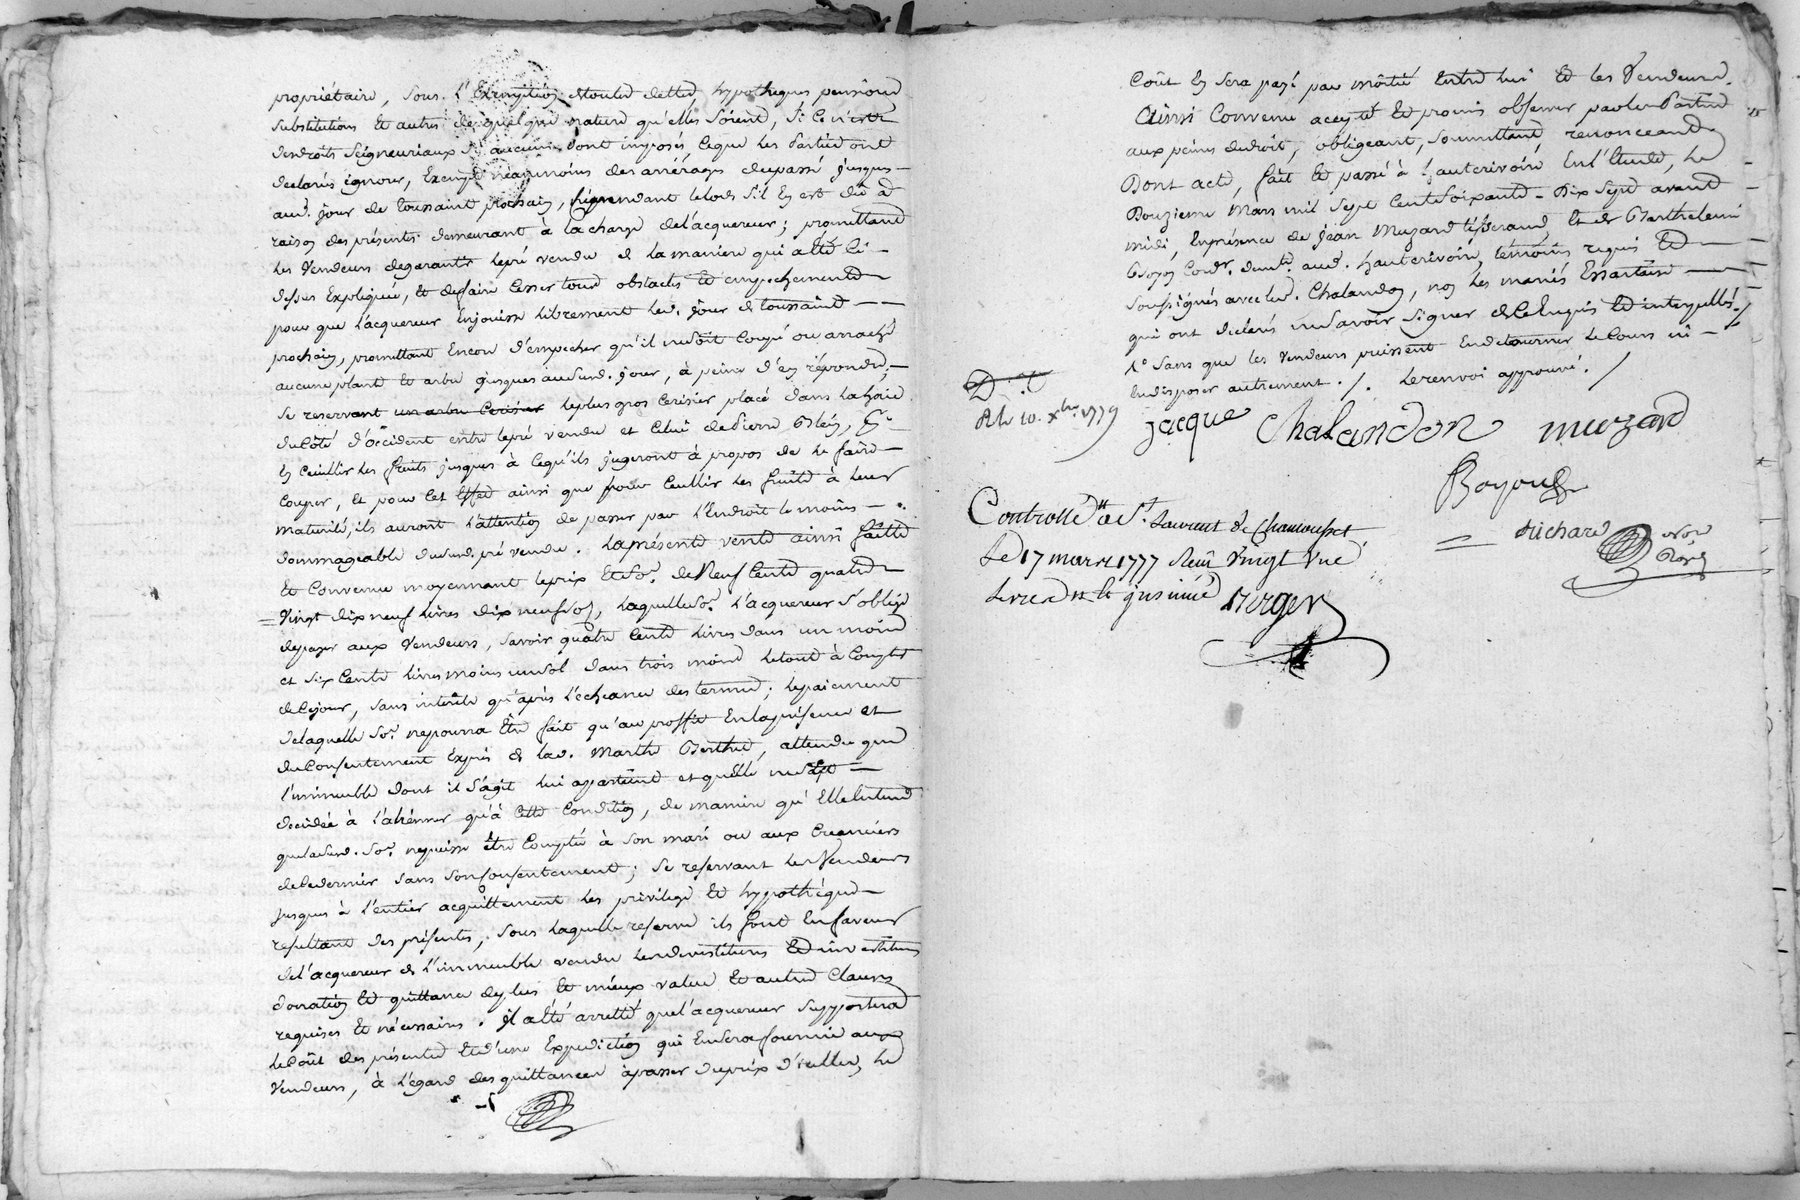 propriétaire, sous l'Exemption de toutes dettes hypotheques pensions
substitutions et autres de quelque nature qu'elles Soient, Si Ce n'est
des droits Seigneuriaux Si aucuns sont imposés Ce que les Parties ont
declarés ignorer, Exempt neanmoins des arrérages du passé jusques
aud. jour de toussaint prochain, Cependant le lods S'il En est dû à
raison des présentes demeurant à la charge de l'acquereur; promettant
les Vendeurs de garantir le pré vendu de la maniere qui a été Ci-
dessus Expliquée, et de faire Cesser tous obstacles et empechements
pour que l'acquereur En jouisse librement led. jour de toussaint
prochain, promettant Encore d'empecher qu'il ne soit Coupé ou arraché
aucune plante et arbre jusques au susd. jour, à peine d'en répondre,
Se reservant un arbre Cerisier le plus gros Cerisier placé dans la haie
du Côté d'occident entre le pré vendu et Celui de Pierre Bléin,
En Ceuillir les fruits jusques à Ce qu'ils jugeront à propos de le faire
Couper, et pour Cet Effet ainsi que pour Ceullir les fruits à leur
maturité, ils auront l'attention de passer par l'Endroit le moins
dommageable du susd. pré vendu. La présente vente ainsi faitte
et Convenue moyennant le prix et So.e de Neuf Cents quatre
Vingt dix neuf livres dix neuf sols, laquelle So.e l'acquereur S'oblige
de payer aux Vendeurs, savoir quatre Cents livres dans un mois
et six Cents livres moins un sol dans trois mois le tout à Compter
de Ce jour, sans intérêts qu'après l'échéance des termes; le paiement
de laquelle So.e ne pourra Être fait qu'au proffit En la présence et
du Consentement Exprès de lad. Marthe Berthet, attendu que
l'immeuble dont il s'agit lui appartient et qu'elle ne s'est
decidée à l'aliénner qu'à Cette Condition, de maniere qu'Elle Entend
que lad. So.e ne puisse être Comptée à son mari ou aux Creanciers
de Ce dernier sans son Consentement; Se reservant les Vendeurs
jusques à l'entier acquittement les privilege et hypothéque
resultant des présentes, sous laquelle reserve ils font En faveur
de l'acquereur de l'immeuble vendu les devestitures et investitures
donation et quittance de plus et mieux value et autres Clauses
requises et nécessaires. Il a été arretté que l'acquereur Supportera
le Coût des présentes et d'une Expedition qui En sera fournie aux
Vendeurs, à l'égard des quittances à passer du prix d'icelles, le
Coût En sera payé par moitié Entre lui et les Vendeurs.
Ainsi Convenu accepté et promis observer par les Parties
aux peines de droit, obligeant, soumettant, renonceant
Dont acte, fait et passé à hauterivoire En l'Etude, le
Douzieme Mars mil Sept Cent Soixante-Dix Sept avant
midi, En présence de Jean Muzard tisserand, Et de Barthelemi
Boyon Cord.r dem.t aud. hauterivoire, temoins requis et
soussignés avec led. Chalandon, non les mariés Essartier
qui ont declarés ne savoir Signer de Ce Enquis et interpellés./
1° Sans que les Vendeurs puissent En detourner le Cours ni
En disposer autrement ./. le renvoi approuvé. /
D. t
R le 10. Xbre 1779
Jacque Chalandon muzard
Boyon
Richard No.re Royal
Controllé à St. Laurent de Chamousset
Le 17 mars 1777 Reçu Vingt Une
Livres insinué Berger